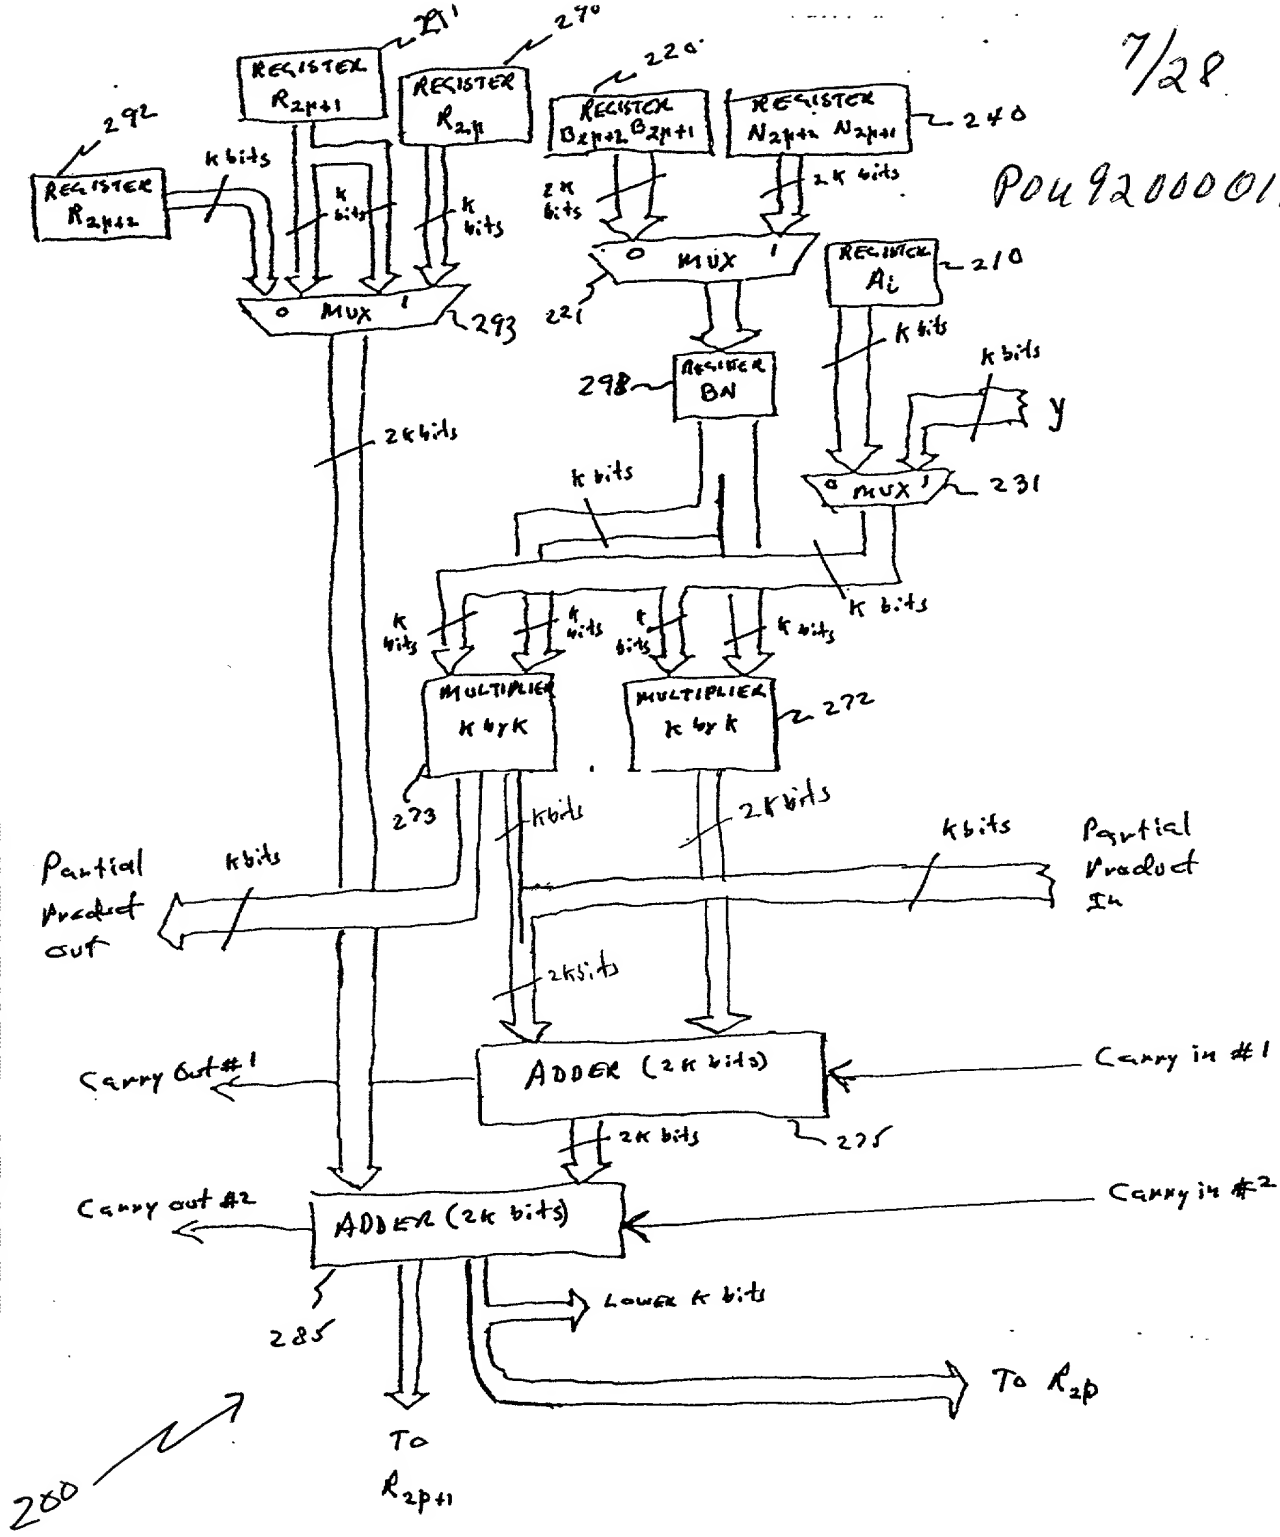 7/28
POU92000001
291
290
220
240
292
REGISTER
R2p+1
REGISTER
R2p
REGISTER
B2p+2 B2p+1
REGISTER
N2p+2 N2p+1
REGISTER
R2p+2
K bits
K bits
K bits
2K bits
2K bits
0 MUX 1
293
0 MUX 1
221
REGISTER
Ai
210
K bits
K bits
y
298
REGISTER
BN
2K bits
K bits
0 MUX 1
231
K bits
K bits
K bits
K bits
K bits
MULTIPLIER
K by K
273
MULTIPLIER
K by K
272
K bits
2K bits
Partial
Product
out
K bits
K bits
Partial
Product
In
2K bits
Carry Out #1
ADDER (2K bits)
Carry in #1
275
2K bits
Carry out #2
ADDER (2K bits)
Carry in #2
285
LOWER K bits
To R2p
To
R2p+1
200